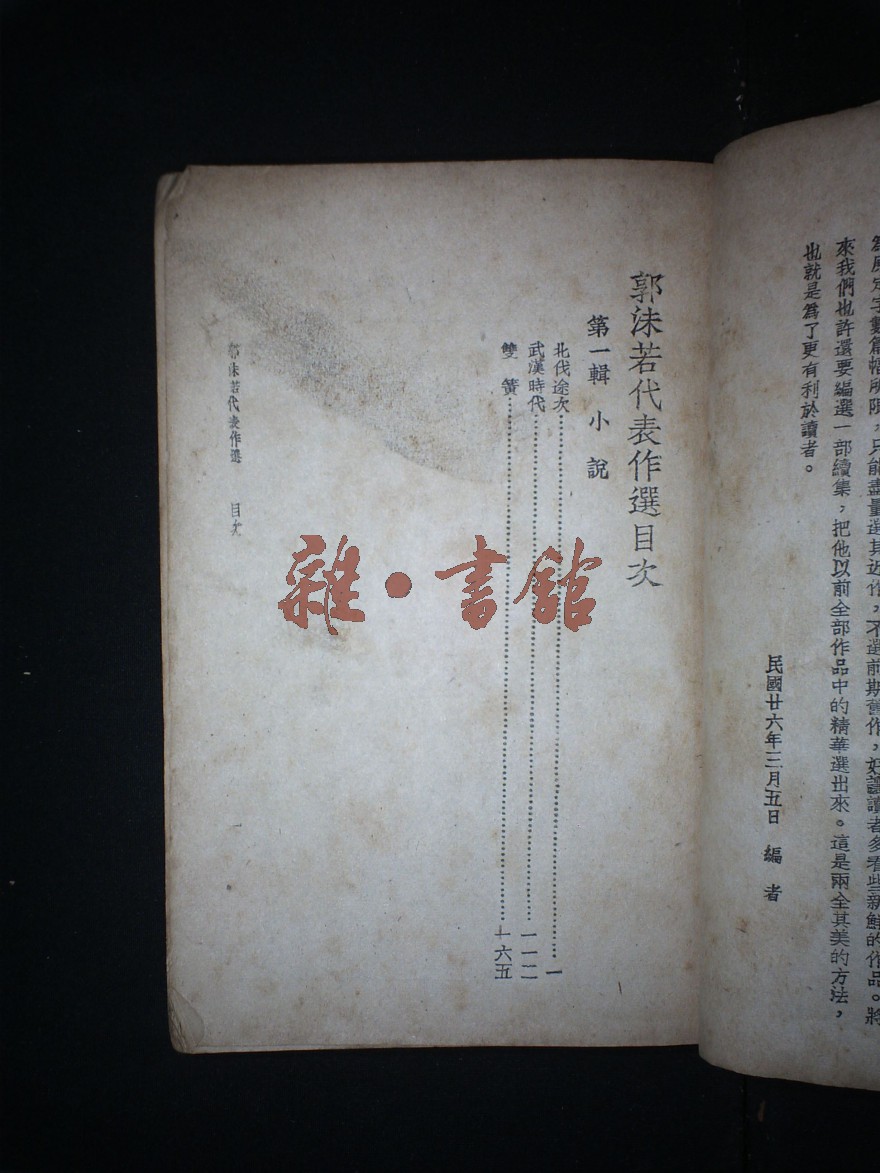 字數篇幅所限，只能盡量選其近作，不選前期舊作，好讓讀者多看些新鮮的作品。將
來我們也許還要編選一部續集，把他以前全部作品中的精華選出來。這是兩全其美的方法，
也就是爲了更有利於讀者。
民國廿六年三月五日 編者
郭沫若代表作選目次
第一輯 小說
北伐途次……………………一
武漢時代……………………一一二
雙簧……………………十六五
郭沫若代表作選 目次
雜·書館